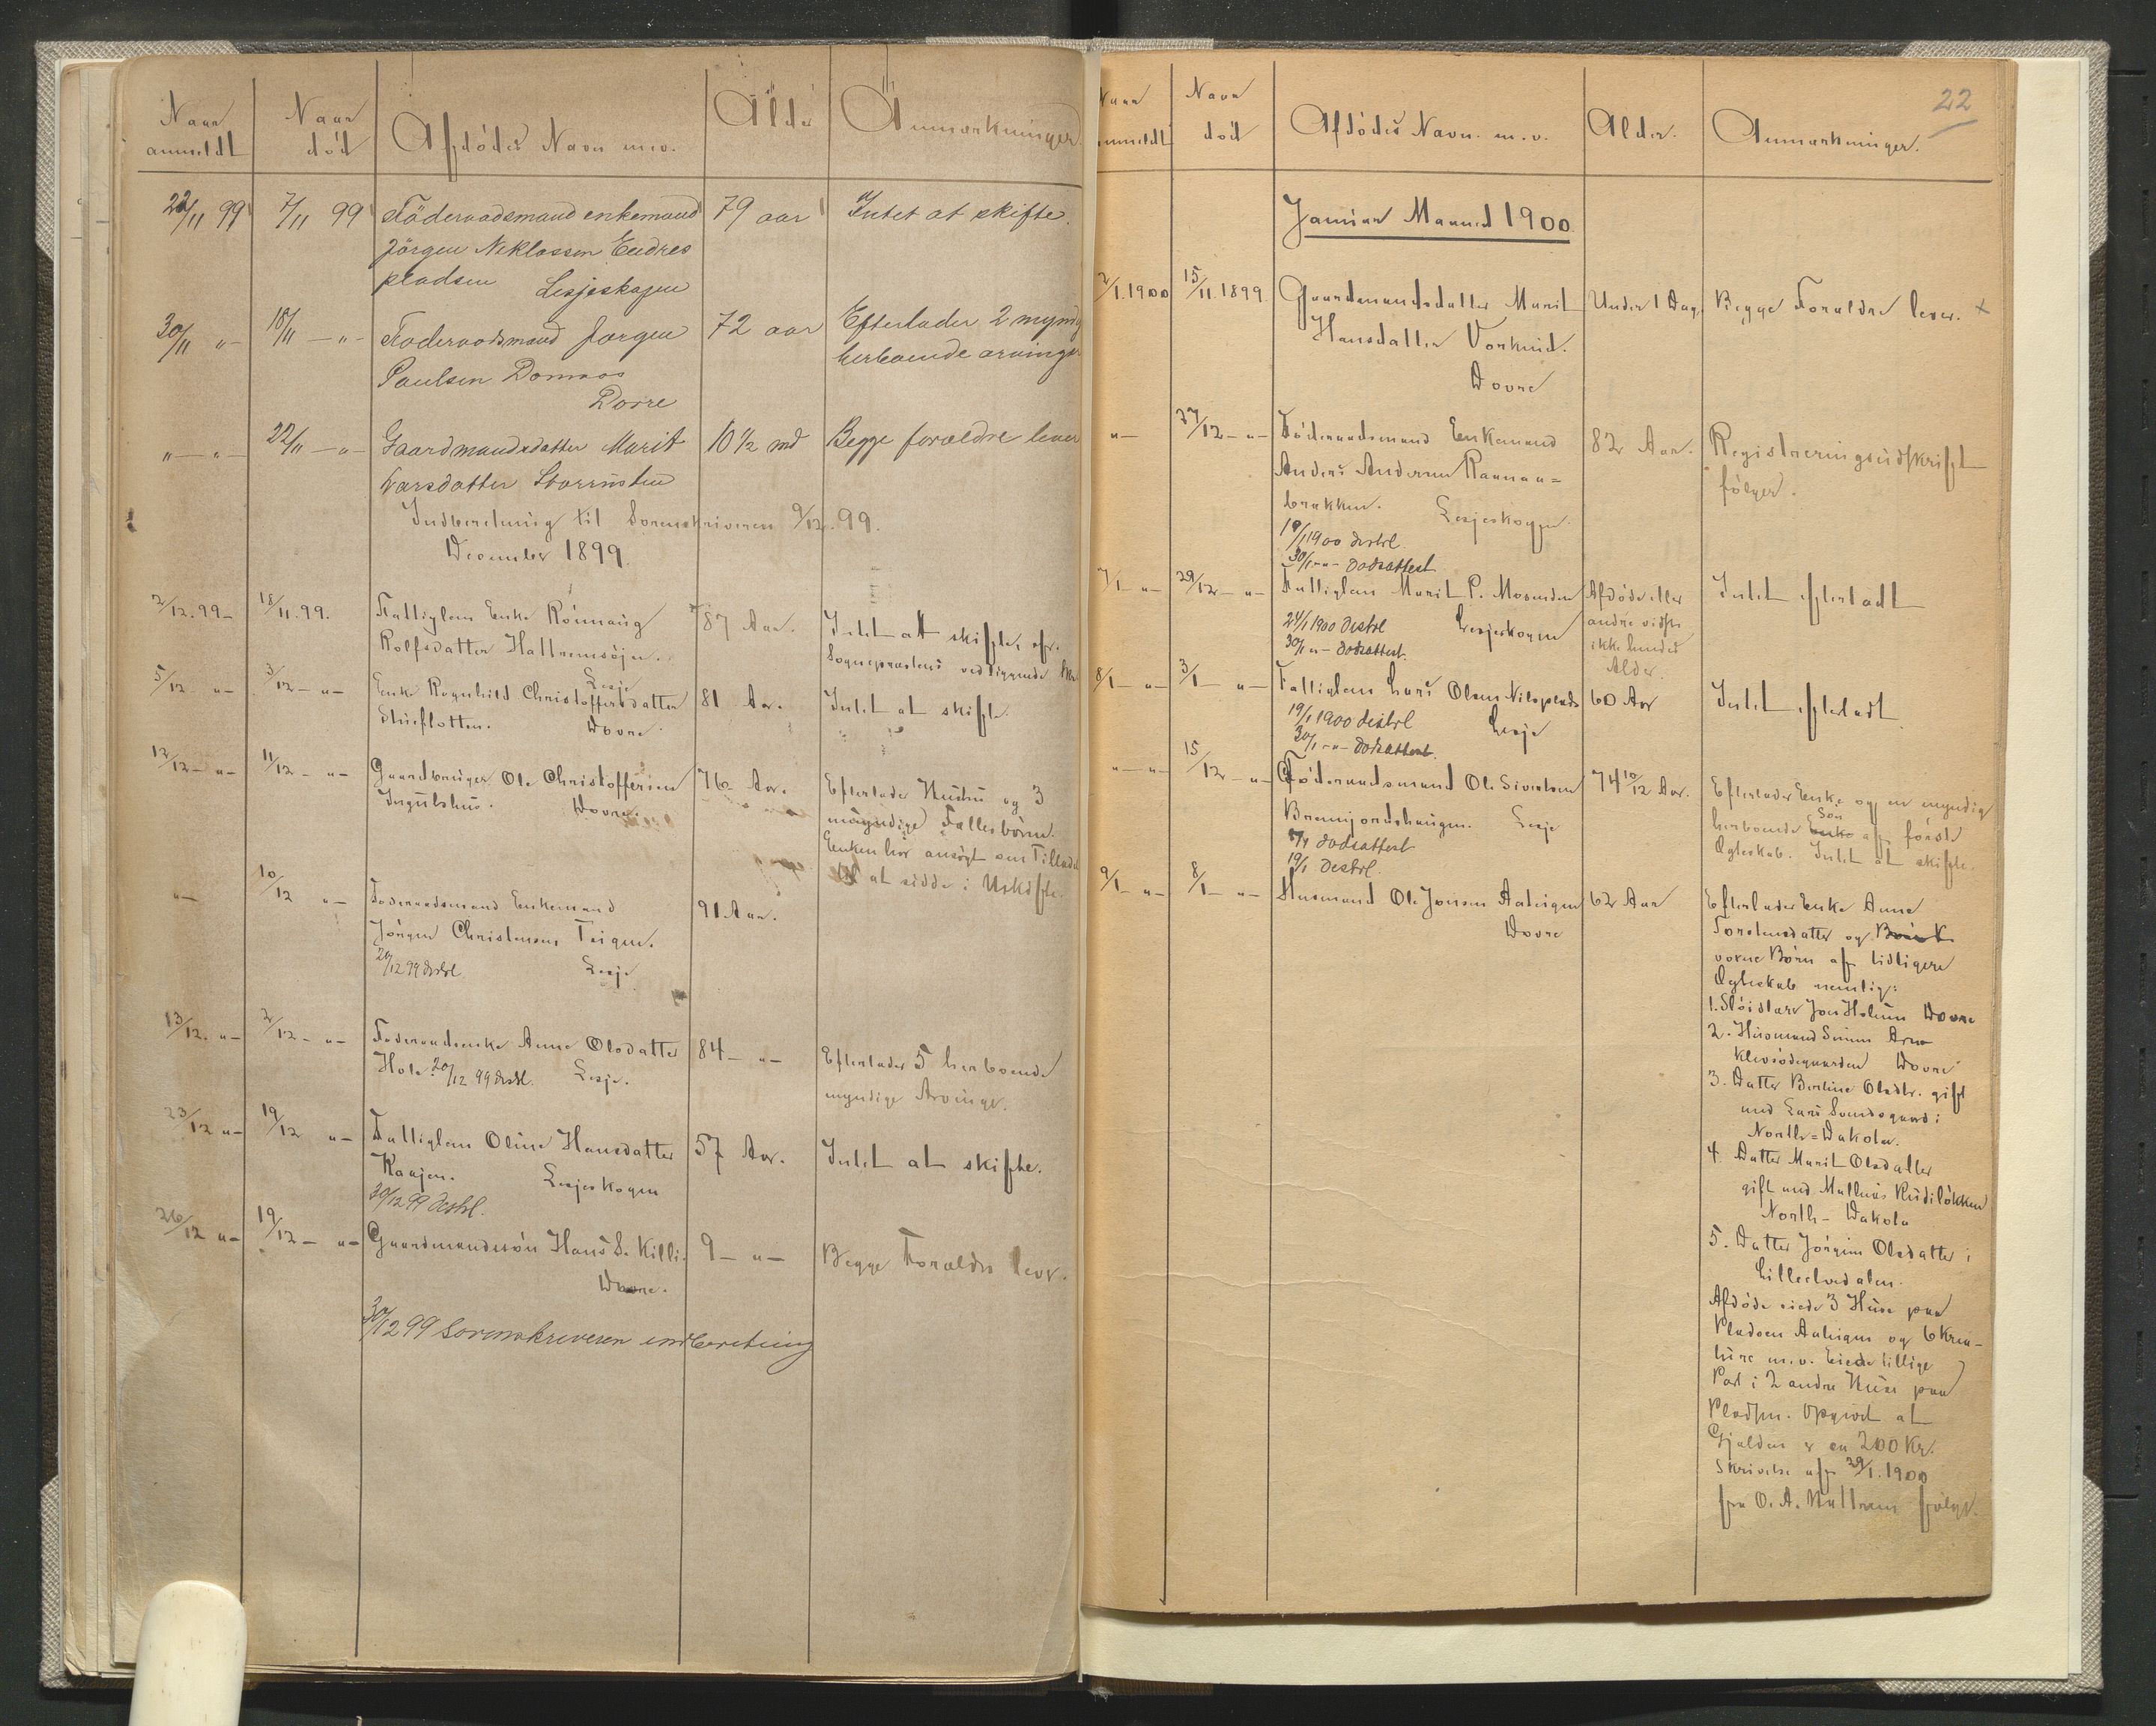 Naar anmeldt | Naar død | Afdødes Navn m.v. | Alder | Anmærkninger
22/11 99 | 7/11 99 | Föderaadsmand enkemand | 79 aar | Intet at skifte.
Jörgen Niklassen Endres
pladsen Lesjeskogen
30/11 "- | 18/11 -"- | Föderaadsmand Jörgen | 72 aar | Efterlader 2 myndig
Paulsen Domaas | herboende arvinger
Dovre
"-"- | 22/11 -"- | Gaardmandsdatter Marit | 10 1/2 md | Begge forældre lever
Larsdatter Storrusten
Indberetning til Sorenskriveren 9/12. 99.
December 1899.
2/12. 99- | 18/11. 99. | Fattiglem Enke Rönnaug | 87 Aar. | Intet at skifte, efr.
Rolfsdatter Hattremsöjn. | Sogneprestens vedliggende
Lesje
5/12 "- | 3/12 -"- | Enke Ragnhild Christoffersdatter | 81 Ar. | Intet at skifte.
Stueflotten. Dovre
12/12 -"- | 11/12 -"- | Gaardbruger Ole Christoffersen | 76 Ar. | Efterlader Hustru og 3
Ingulshus. Dovre. | myndige Fællesbörn.
Enken har ansögt om Tilladel
at sidde i Uskifte.
"- | 10/12 "- | Föderaadsmand Enkemand | 91 Aar.
Jörgen Christensen Teigen.
20/12 99 destrl. Lesje
13/12. "- | 2/12 -"- | Föderaadsenke Anne Olsdatter | 84 -"- | Efterlader 5 herboende
Hole. 20/12 99 destrl. Lesje. | myndige Arvinge.
23/12 "- | 19/12 "- | Fattiglem Oline Hansdatter | 57 Ar. | Intet at skifte.
Kaajen. Lesjeskogen
30/12 99 destrl.
26/12 "- | 19/12 -"- | Gaardmandssön Hans S. Killi. | 9 -"- | Begge Forældre lever.
Dovre.
30/12 99 Sorenskriveren indberetning
22
Naar anmeldt | Naar död | Afdödes Navn. m.v. | Alder. | Anmærkninger.
Januar Maaned 1900
2/1.1900 | 15/11.1899. | Gaardmandsdatter Marit | Under 1 Dag. | Begge Forældre lever. x
Hansdatter Vorkind.
Dovre
"- | 27/12 -"- | Föderaadsmand Enkemand | 82 Aar. | Registreringsudskrift
Anders Andersen Raanaa= | fölger.
brækken. Lesjeskogen
19/1 1900 destrl.
30/1 -"- dødsattest
7/1 "- | 29/12 -"- | Fattiglem Marit P. Mosenden | Afdöde eller | Intet efterladt
24/1 1900 destrl Lesjeskogen | andre vidste
30/1 "- dødsattest. | ikke hendes
Alder.
8/1 -"- | 3/1 -"- | Fattiglem Lars Olsen Nilsplads | 60 Aar | Intet efterladt
19/1 1900 destrl Lesje
30/1 -"- dødsattest.
"-"- | 15/12 -"- | Föderaadsmand Ole Sivertsen | 74 10/12 Aar. | Efterlader Enke og en myndig
Brennjordshaugen. Lesje | herboende Enke Sön af förste
dødsattest | Ægteskab. Intet at skifte.
19/1 destrl.
9/1 -"- | 8/1 -"- | Husmand Ole Jonsen Aateigen | 62 Aar | Efterlader Enke Anne
Dovre | Torstensdatter og
voxne Börn af tidligere
Ægteskab nemlig:
1. Slöidlær Jon Holum Dovre
2. Husmand Simen
Klevsödegaarden Dovre
3. Datter Berline Olsdtr. gift
med Lars Sondsgaard i
North=Dakota.
4. Datter Marit Olsdatter
gift med Mathias Rudilökken
North-Dakota
5. Datter Jörgine Olsdatter i
Lilleelvedalen.
Afdöde eiede 3 Huse paa
Pladsen Aateigen og 6 Krea-
turer m.v. Eiede tillige
Part i 2 andre Huse paa
Pladsen. Opgivet at
Gjælden er ca 200 Kr.
Skrivelse af 29/1. 1900
fra O. A. Hattrem fölger.